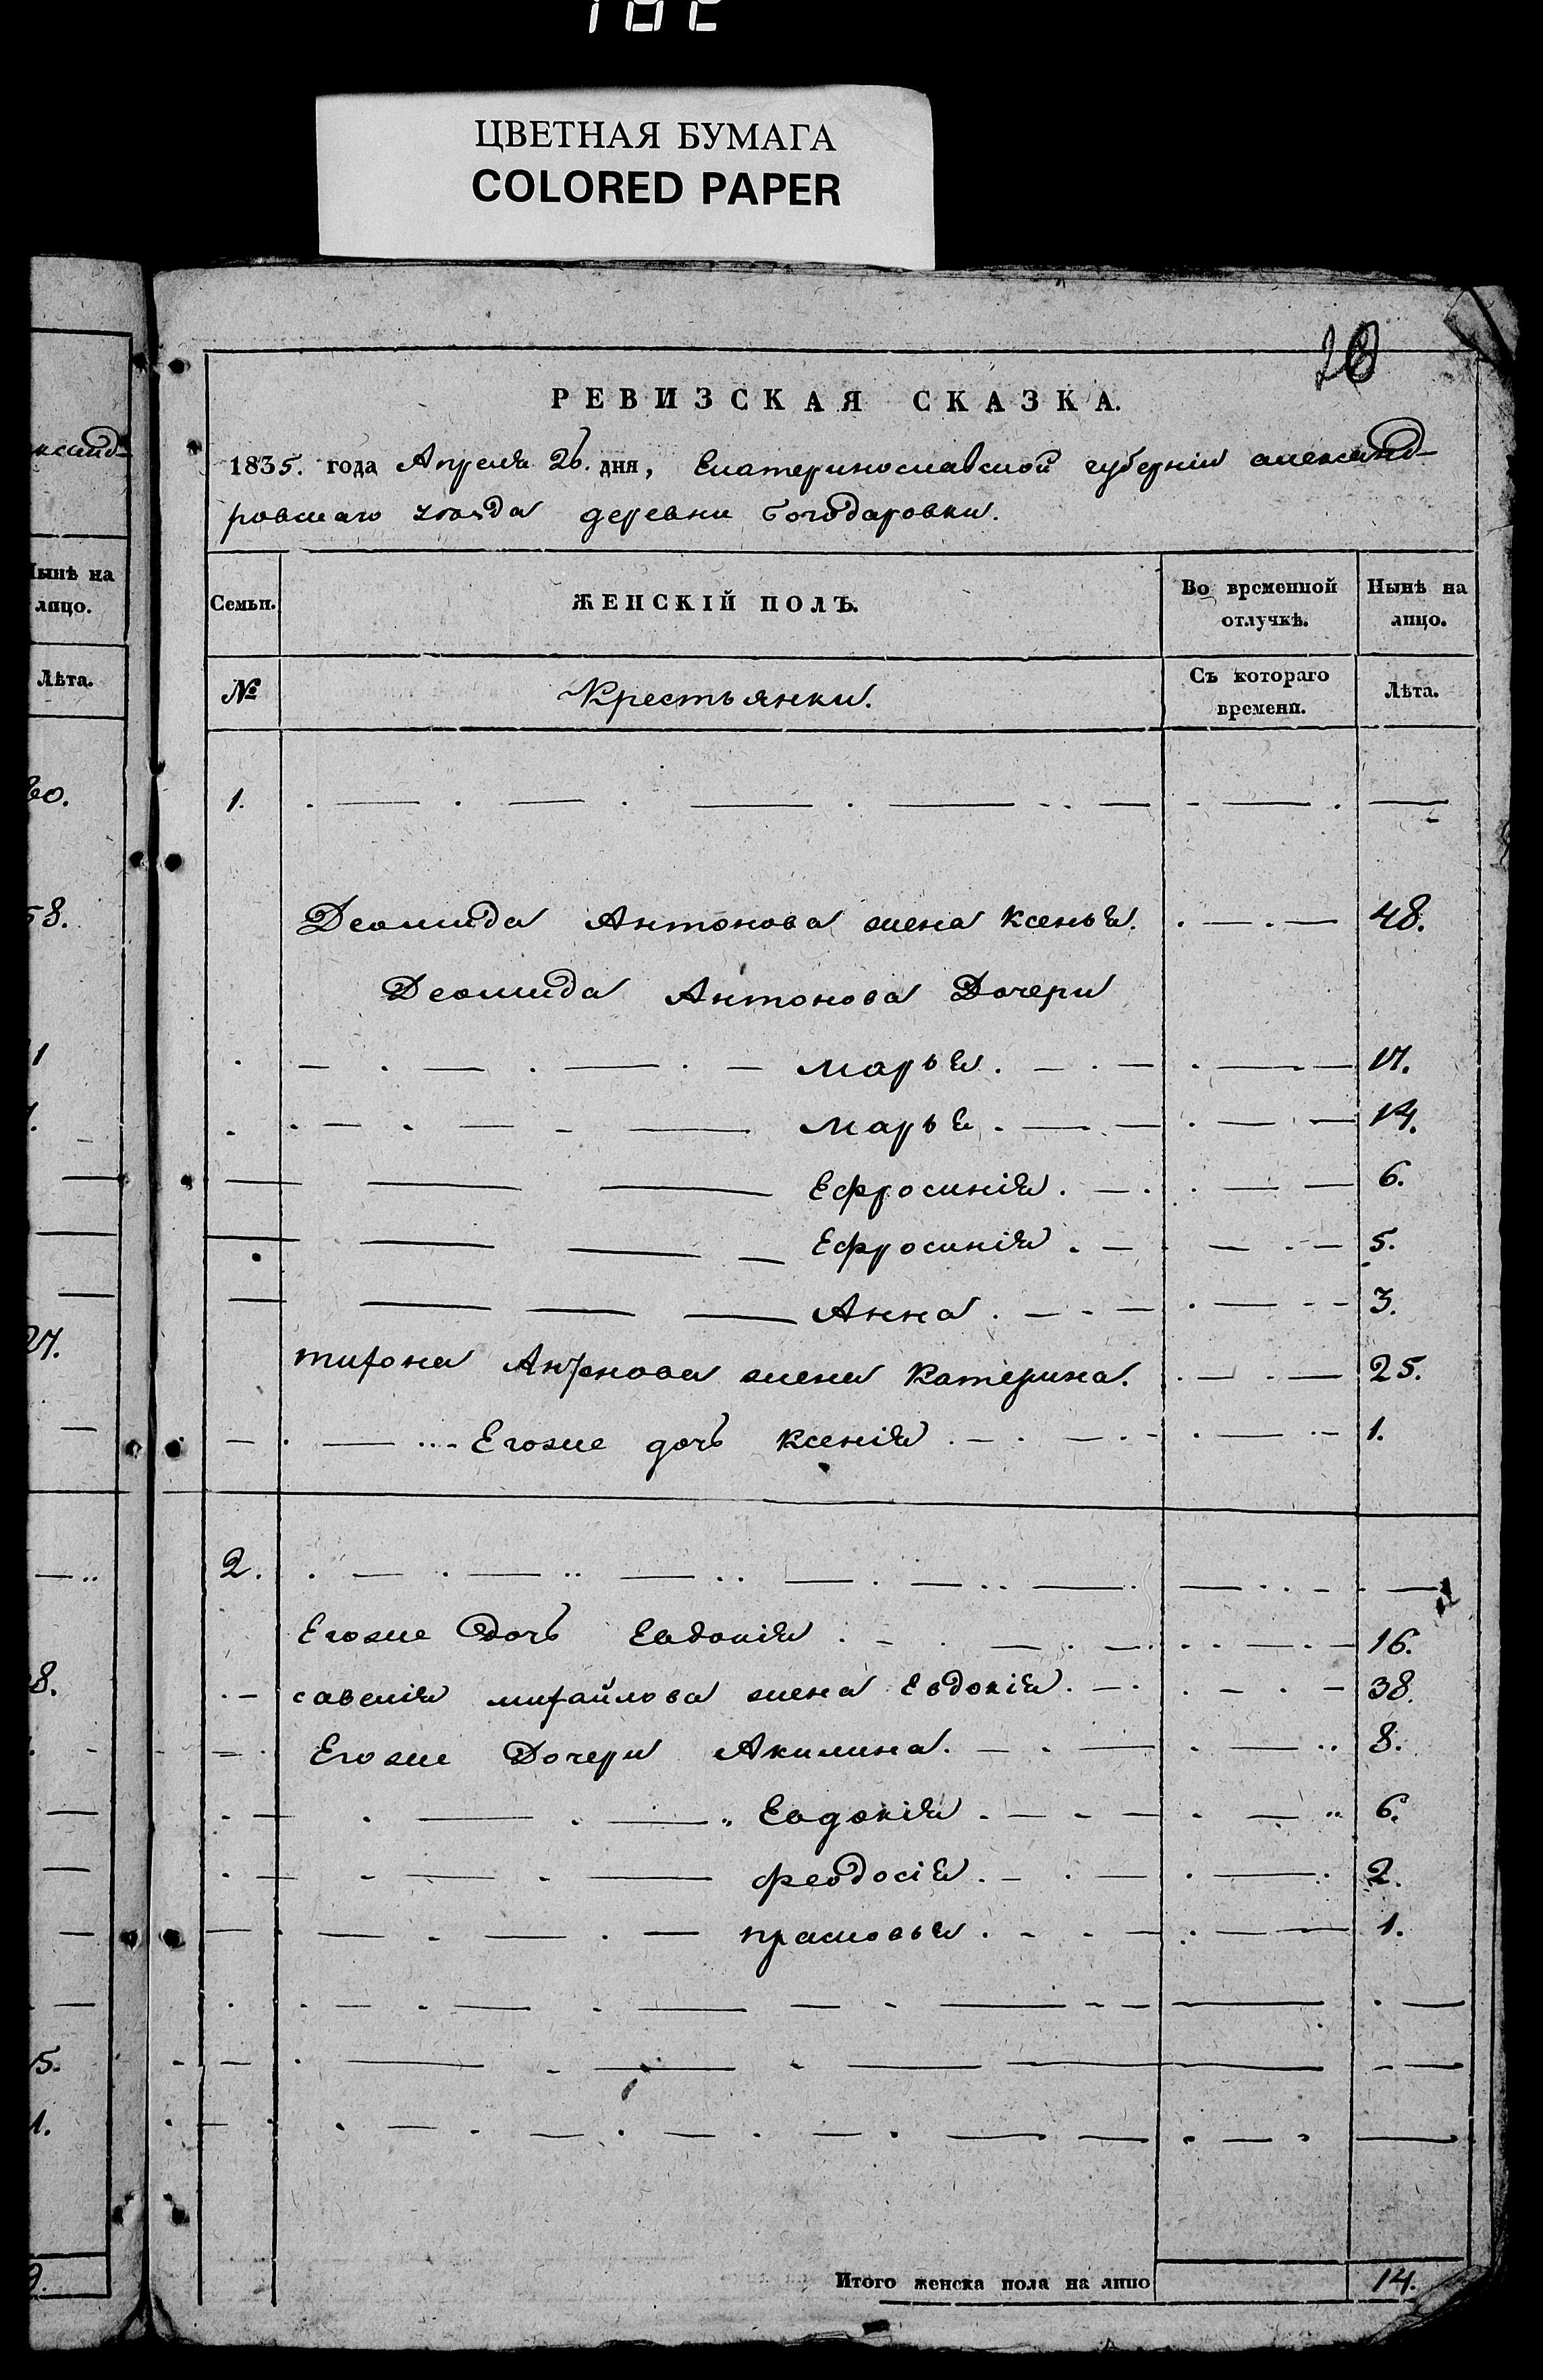 ЦВЕТНАЯ БУМАГА
COLORED PAPER
РЕВИЗСКАЯ СКАЗКА.
1835. года Апреля 26. дня, Екатеринославской губерніи александ-
ровскаго уѣзда деревни Богодаровки.
Семьи. ЖЕНСКІЙ ПОЛЪ. Во временной отлучкѣ. Нынѣ на лицо.
№ Крестьянки. Съ котораго времени. Лѣта.
1.
Деомида Антонова жена Ксенья. 48.
Деомида Антонова Дочери
марья. 17.
марья. 14.
Ефросинія. 6.
Ефросинія. 5.
Анна. 3.
тихона Антонова жена Катерина. 25.
Егоже дочь Ксенія. 1.
2.
Егоже дочь Евдокія. 16.
савелія михайлова жена Евдокія. 38.
Егоже Дочери Акилина. 8.
Евдокія. 6.
феодосія. 2.
прасковья. 1.
Итого женска пола на лицо 14.
ксанд-
Нынѣ на
лицо.
Лѣта.